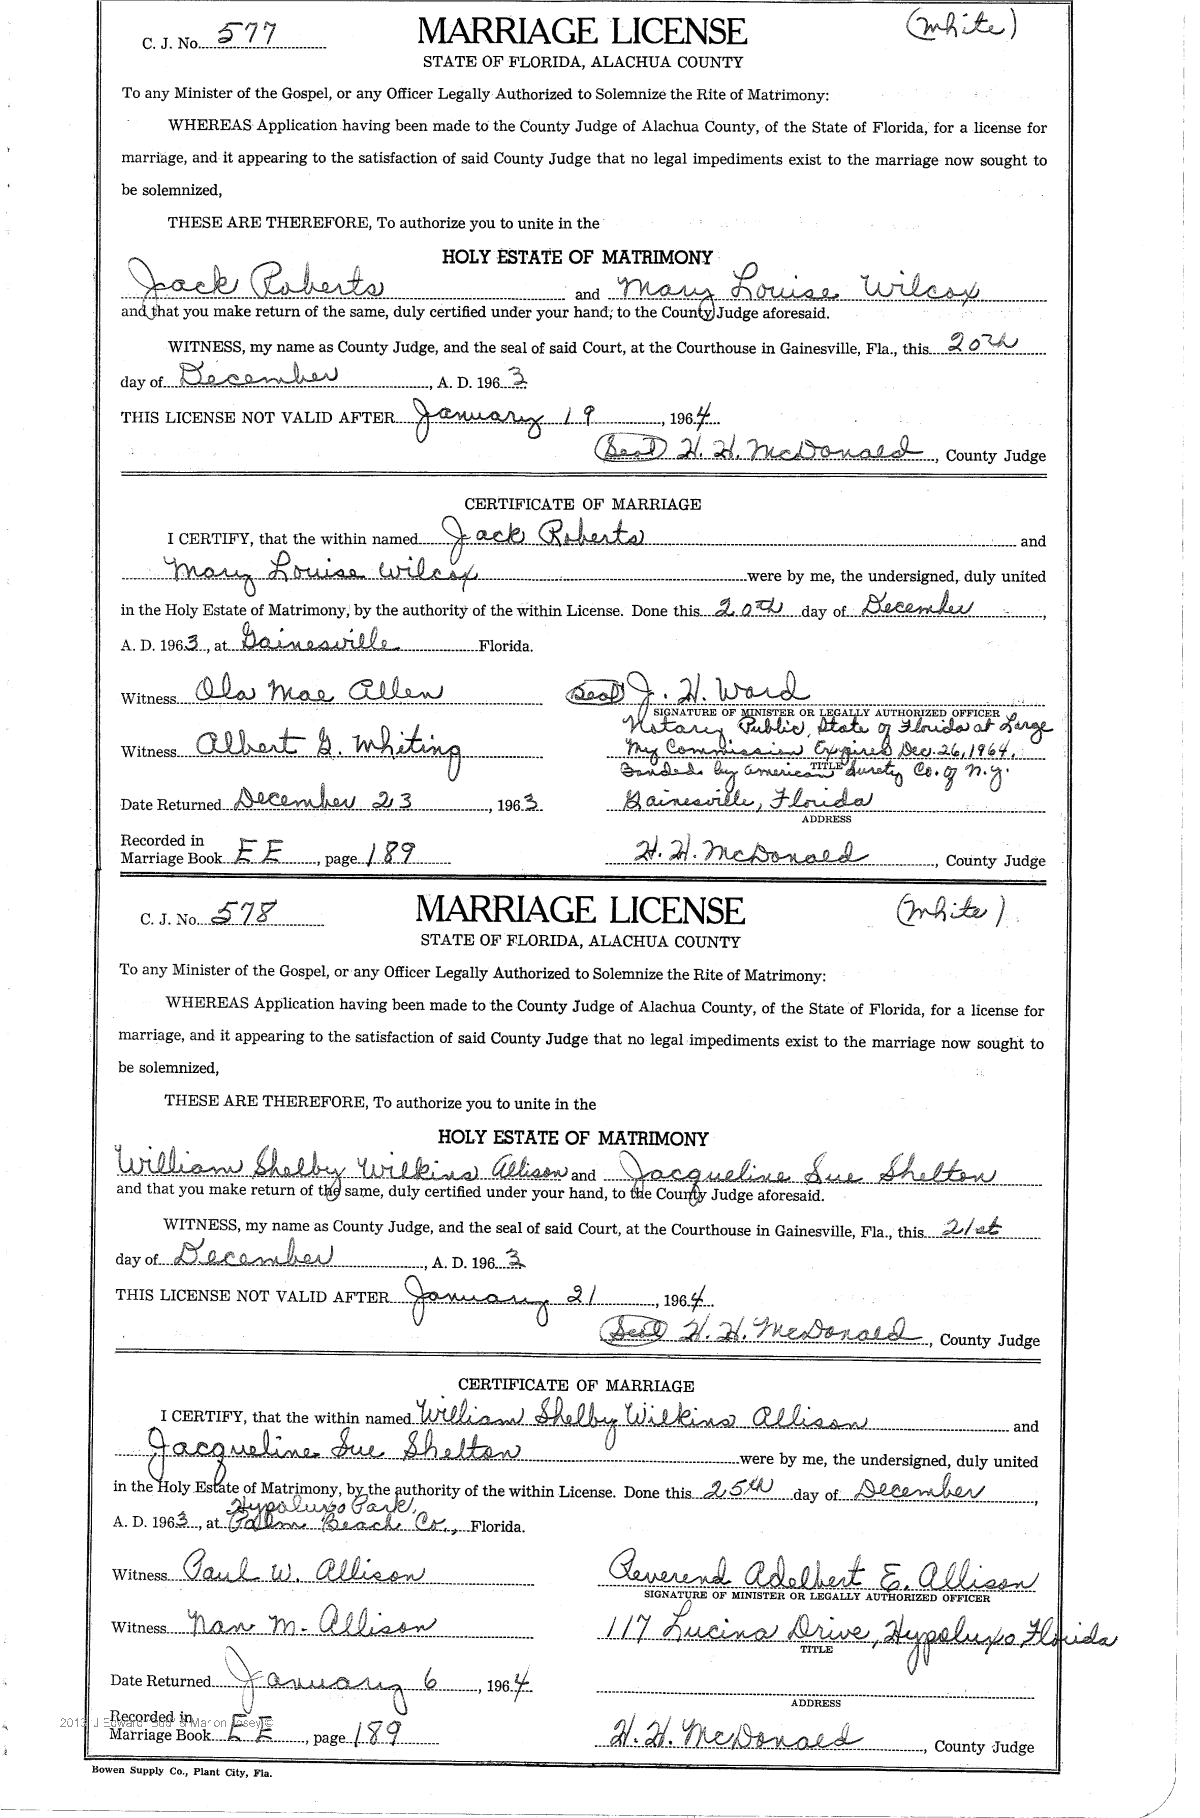 C. J. No. 577 MARRIAGE LICENSE (White)
STATE OF FLORIDA, ALACHUA COUNTY
To any Minister of the Gospel, or any Officer Legally Authorized to Solemnize the Rite of Matrimony:
WHEREAS Application having been made to the County Judge of Alachua County, of the State of Florida, for a license for
marriage, and it appearing to the satisfaction of said County Judge that no legal impediments exist to the marriage now sought to
be solemnized,
THESE ARE THEREFORE, To authorize you to unite in the
HOLY ESTATE OF MATRIMONY
Jack Roberts and Mary Louise Wilcox
and that you make return of the same, duly certified under your hand, to the County Judge aforesaid.
WITNESS, my name as County Judge, and the seal of said Court, at the Courthouse in Gainesville, Fla., this 20th
day of December, A. D. 1963
THIS LICENSE NOT VALID AFTER January 19, 1964
(Seal) H. H. McDonald, County Judge
CERTIFICATE OF MARRIAGE
I CERTIFY, that the within named Jack Roberts and
Mary Louise Wilcox were by me, the undersigned, duly united
in the Holy Estate of Matrimony, by the authority of the within License. Done this 20th day of December,
A. D. 1963, at Gainesville Florida.
Witness Ola Mae Allen (Seal) J. H. Ward
SIGNATURE OF MINISTER OR LEGALLY AUTHORIZED OFFICER
Notary Public, State of Florida at Large
Witness Albert G. Whiting My Commission Expires Dec. 26, 1964.
TITLE
Bonded by American Surety Co. of N.Y.
Date Returned December 23, 1963 Gainesville, Florida
ADDRESS
Recorded in
Marriage Book EE, page 189 H. H. McDonald, County Judge
C. J. No. 578 MARRIAGE LICENSE (White)
STATE OF FLORIDA, ALACHUA COUNTY
To any Minister of the Gospel, or any Officer Legally Authorized to Solemnize the Rite of Matrimony:
WHEREAS Application having been made to the County Judge of Alachua County, of the State of Florida, for a license for
marriage, and it appearing to the satisfaction of said County Judge that no legal impediments exist to the marriage now sought to
be solemnized,
THESE ARE THEREFORE, To authorize you to unite in the
HOLY ESTATE OF MATRIMONY
William Shelby Wilkins Allison and Jacqueline Sue Shelton
and that you make return of the same, duly certified under your hand, to the County Judge aforesaid.
WITNESS, my name as County Judge, and the seal of said Court, at the Courthouse in Gainesville, Fla., this 21st
day of December, A. D. 1963
THIS LICENSE NOT VALID AFTER January 21, 1964
(Seal) H. H. McDonald, County Judge
CERTIFICATE OF MARRIAGE
I CERTIFY, that the within named William Shelby Wilkins Allison and
Jacqueline Sue Shelton were by me, the undersigned, duly united
in the Holy Estate of Matrimony, by the authority of the within License. Done this 25th day of December,
Hypoluxo Park
A. D. 1963, at Palm Beach Co., Florida.
Witness Paul W. Allison Reverend Adelbert E. Allison
SIGNATURE OF MINISTER OR LEGALLY AUTHORIZED OFFICER
Witness Nan M. Allison 117 Lucina Drive, Hypoluxo Florida
TITLE
Date Returned January 6, 1964
ADDRESS
Recorded in
2013 J Edward "Bud" & Marion Josey ©
Marriage Book EE, page 189 H. H. McDonald, County Judge
Bowen Supply Co., Plant City, Fla.